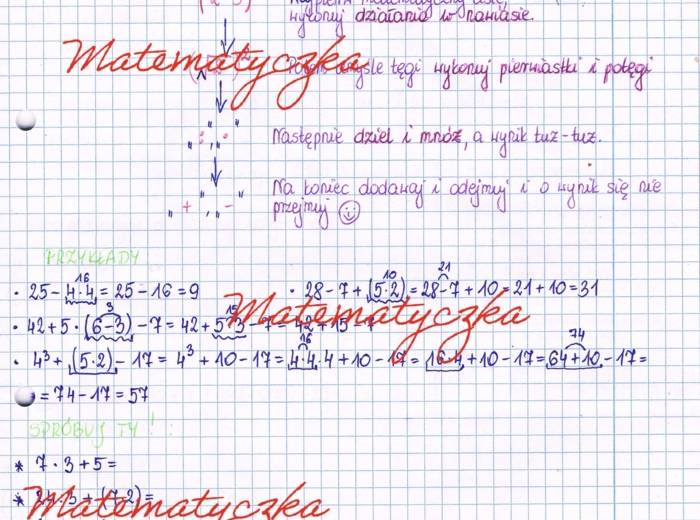 wykonuj działania w nawiasie.
Matematyczka
myśle tęgi wykonuj pierwiastki i potęgi
Następnie dziel i mnóż, a wynik tuż-tuż.
Na koniec dodawaj i odejmuj i o wynik się nie
przejmuj ☺
PRZYKŁADY
16
· 25 - 4 · 4 = 25 - 16 = 9
10 21
· 28 - 7 + (5·2) = 28 - 7 + 10 = 21 + 10 = 31
Matematyczka
3 15
· 42 + 5 · (6-3) - 7 = 42 + 5·3 - 7 = 42 + 15 - 7
16 74
· 4³ + (5·2) - 17 = 4³ + 10 - 17 = 4·4·4 + 10 - 17 = 16·4 + 10 - 17 = 64 + 10 - 17 =
= 74 - 17 = 57
SPRÓBUJ TY ! :
* 7 · 3 + 5 =
Matematyczka